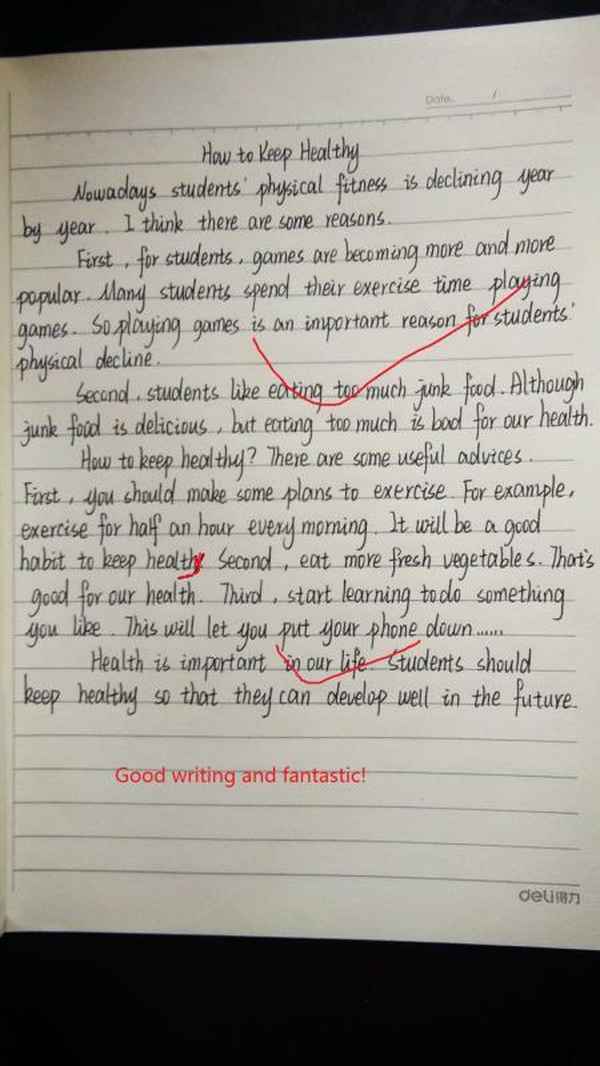 Date. /
How to Keep Healthy
Nowadays students' physical fitness is declining year
by year. I think there are some reasons.
First, for students, games are becoming more and more
popular. Many students spend their exercise time playing
games. So playing games is an important reason for students'
physical decline.
Second, students like eating too much junk food. Although
junk food is delicious, but eating too much is bad for our health.
How to keep healthy? There are some useful advices.
First, you should make some plans to exercise. For example,
exercise for half an hour every morning. It will be a good
habit to keep healthy Second, eat more fresh vegetables. That's
good for our health. Third, start learning to do something
you like. This will let you put your phone down......
Health is important in our life. Students should
keep healthy so that they can develop well in the future.
Good writing and fantastic!
deli得力